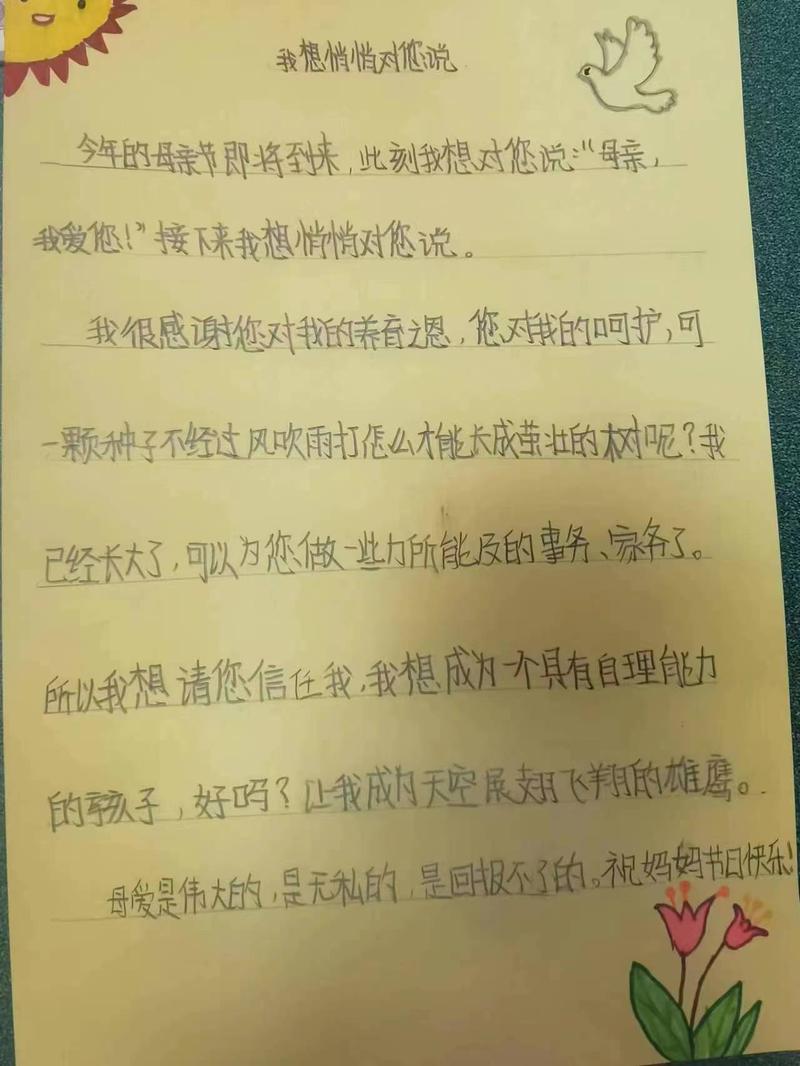 我想悄悄对您说
今年的母亲节即将到来，此刻我想对您说：“母亲，
我爱您！”接下来我想悄悄对您说。
我很感谢您对我的养育之恩，您对我的呵护，可
一颗种子不经过风吹雨打怎么才能长成茁壮的树呢？我
已经长大了，可以为您做一些力所能及的事务、家务了。
所以我想请您信任我，我想成为一个具有自理能力
的孩子，好吗？让我成为天空展翅飞翔的雄鹰。
母爱是伟大的，是无私的，是回报不了的。祝妈妈节日快乐！